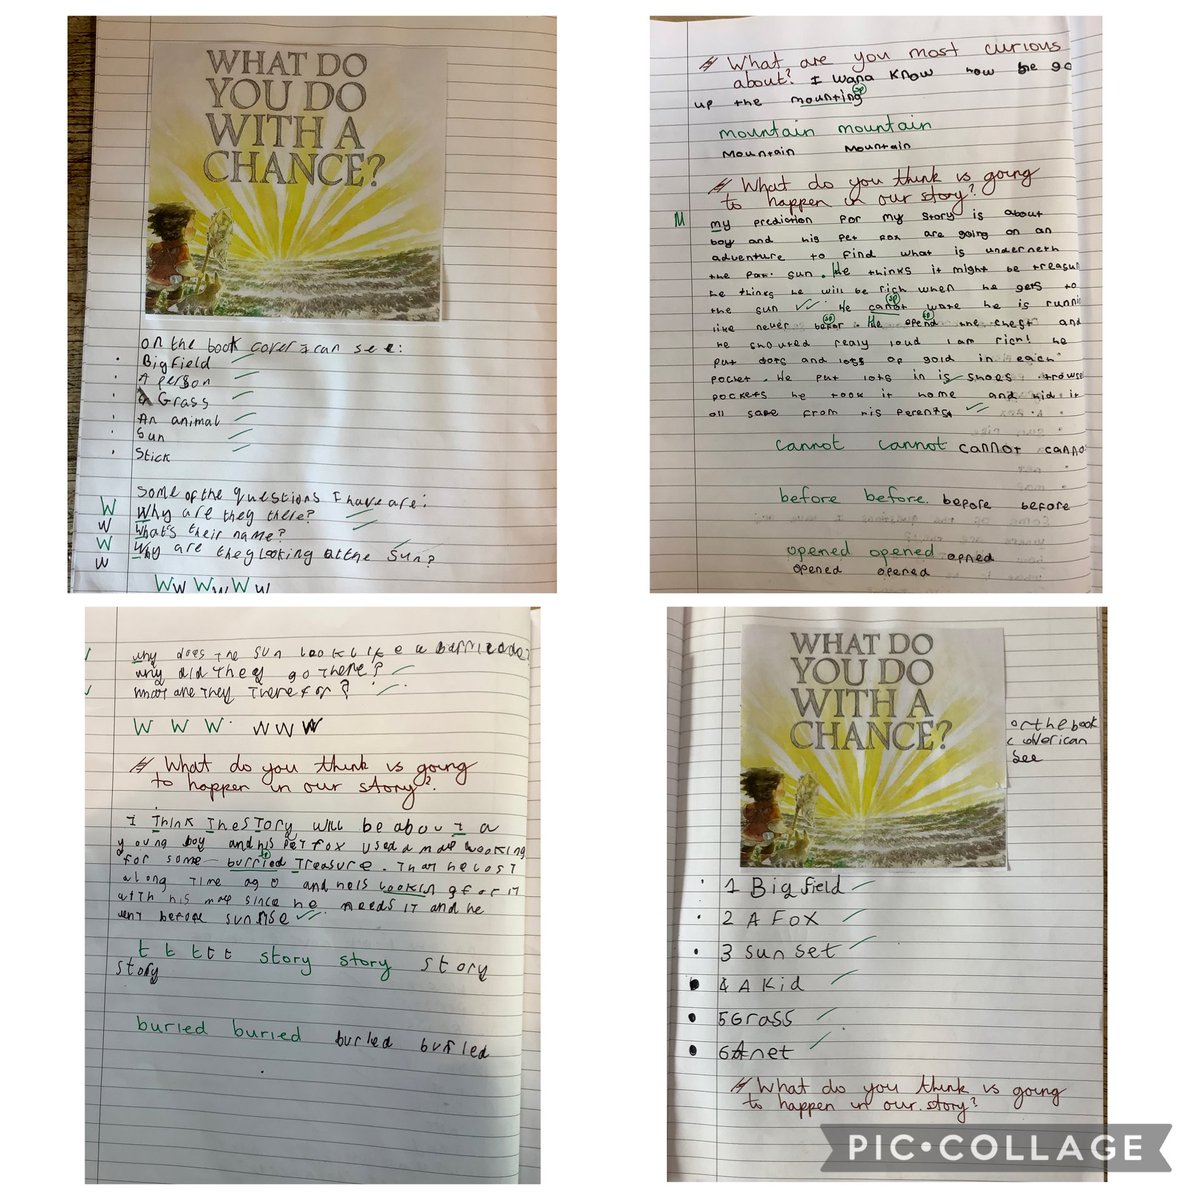 WHAT DO
YOU DO
WITH A
CHANCE?
on the book cover I can see:
Big Field
A person
Grass
An animal
Sun
Stick
Some of the questions I have are:
W Why are they there?
w What's their name?
W Why are they looking at the Sun?
w
Ww Ww W w
What are you most curious
about? I wana know how he go
up the mounting sp
mountain mountain
Mountain Mountain
What do you think is going
to happen in our story?
M my prediction for my story is about
boy and his pet fox are going on an
adventure to find what is underneth
the far sun. He thinks it might be treasur
he thinks he will be rich when he gets to
the sun He cannot sp he is runni
like never befor sp. He opend sp the chest and
he shouted realy loud I am rich! he
put dots and lots of gold in each
pocket. He put lots in is shoes trowse
pockets he took it home and hid it
all safe from his Perents
cannot cannot cannot canno
before before. before before
opened opened opned
opened opened
why does the sun look like a barricade?
why did they go there?
what are they there for?
W W W W W W
What do you think is going
to happen in our story?
I think The STory will be about a
young boy and his PeT fox used a map looking
for some burried sp Treasure. That he lost
along Time ago and he is looking for iT
with his map since he needs iT and he
before sunrise
t t t t t story story story
story
buried buried buried buried
WHAT DO
YOU DO
WITH A
CHANCE?
on the book
cover ican
see
1 Big field
2 A Fox
3 Sun set
4 A kid
5 Grass
6 A net
What do you think is going
to happen in our story?
PIC•COLLAGE